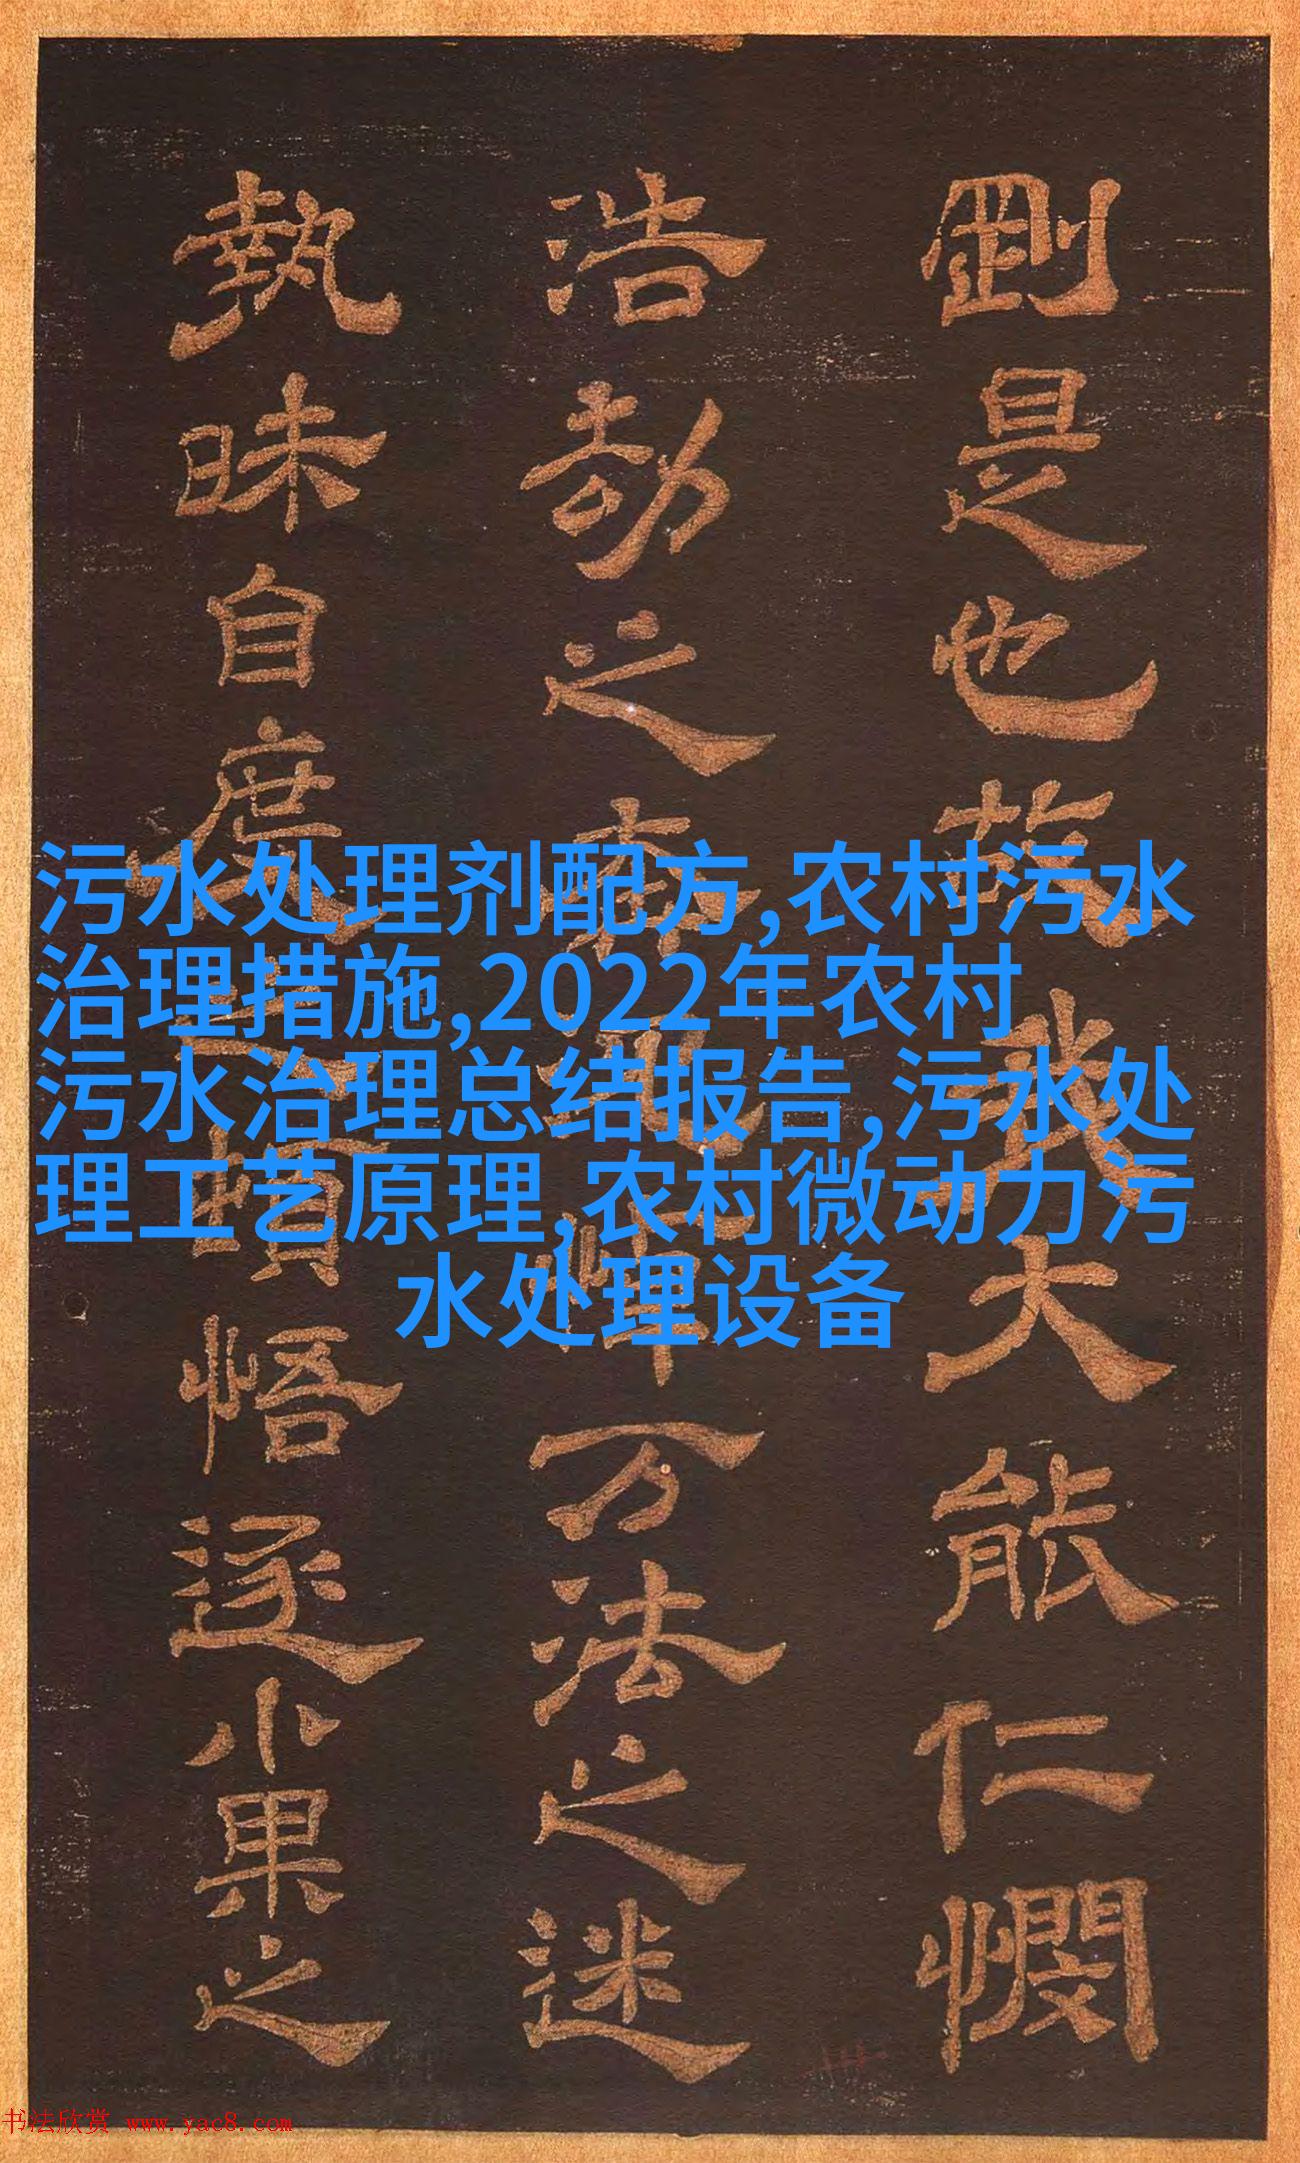 㓻是也故我大能仁憫
浩劫之万法之迷
執昧自度頓悟逐小果之
污水处理剂配方,农村污水
治理措施,2022年农村
污水治理总结报告,污水处
理工艺原理,农村微动力污
水处理设备
书法欣赏 www.yac8.com